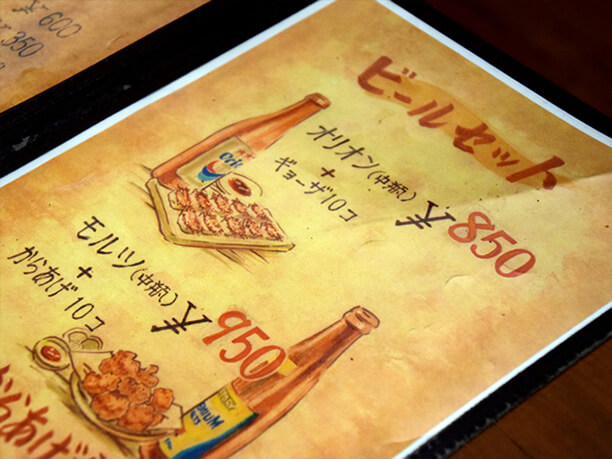 ¥600
350
ビールセット
オリオン(中瓶)
+
ギョーザ10コ
¥850
モルツ(中瓶)
+
からあげ10コ
¥950
からあげ